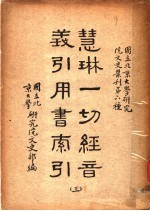 國立北京大學研究
院文史叢刊第六種
慧琳一切經音
義引用書索引
(三)
國立北
京大學研究院文史部編